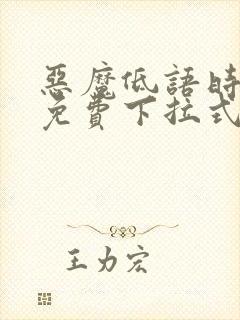 惡魔低語時
免費下拉式
王力宏